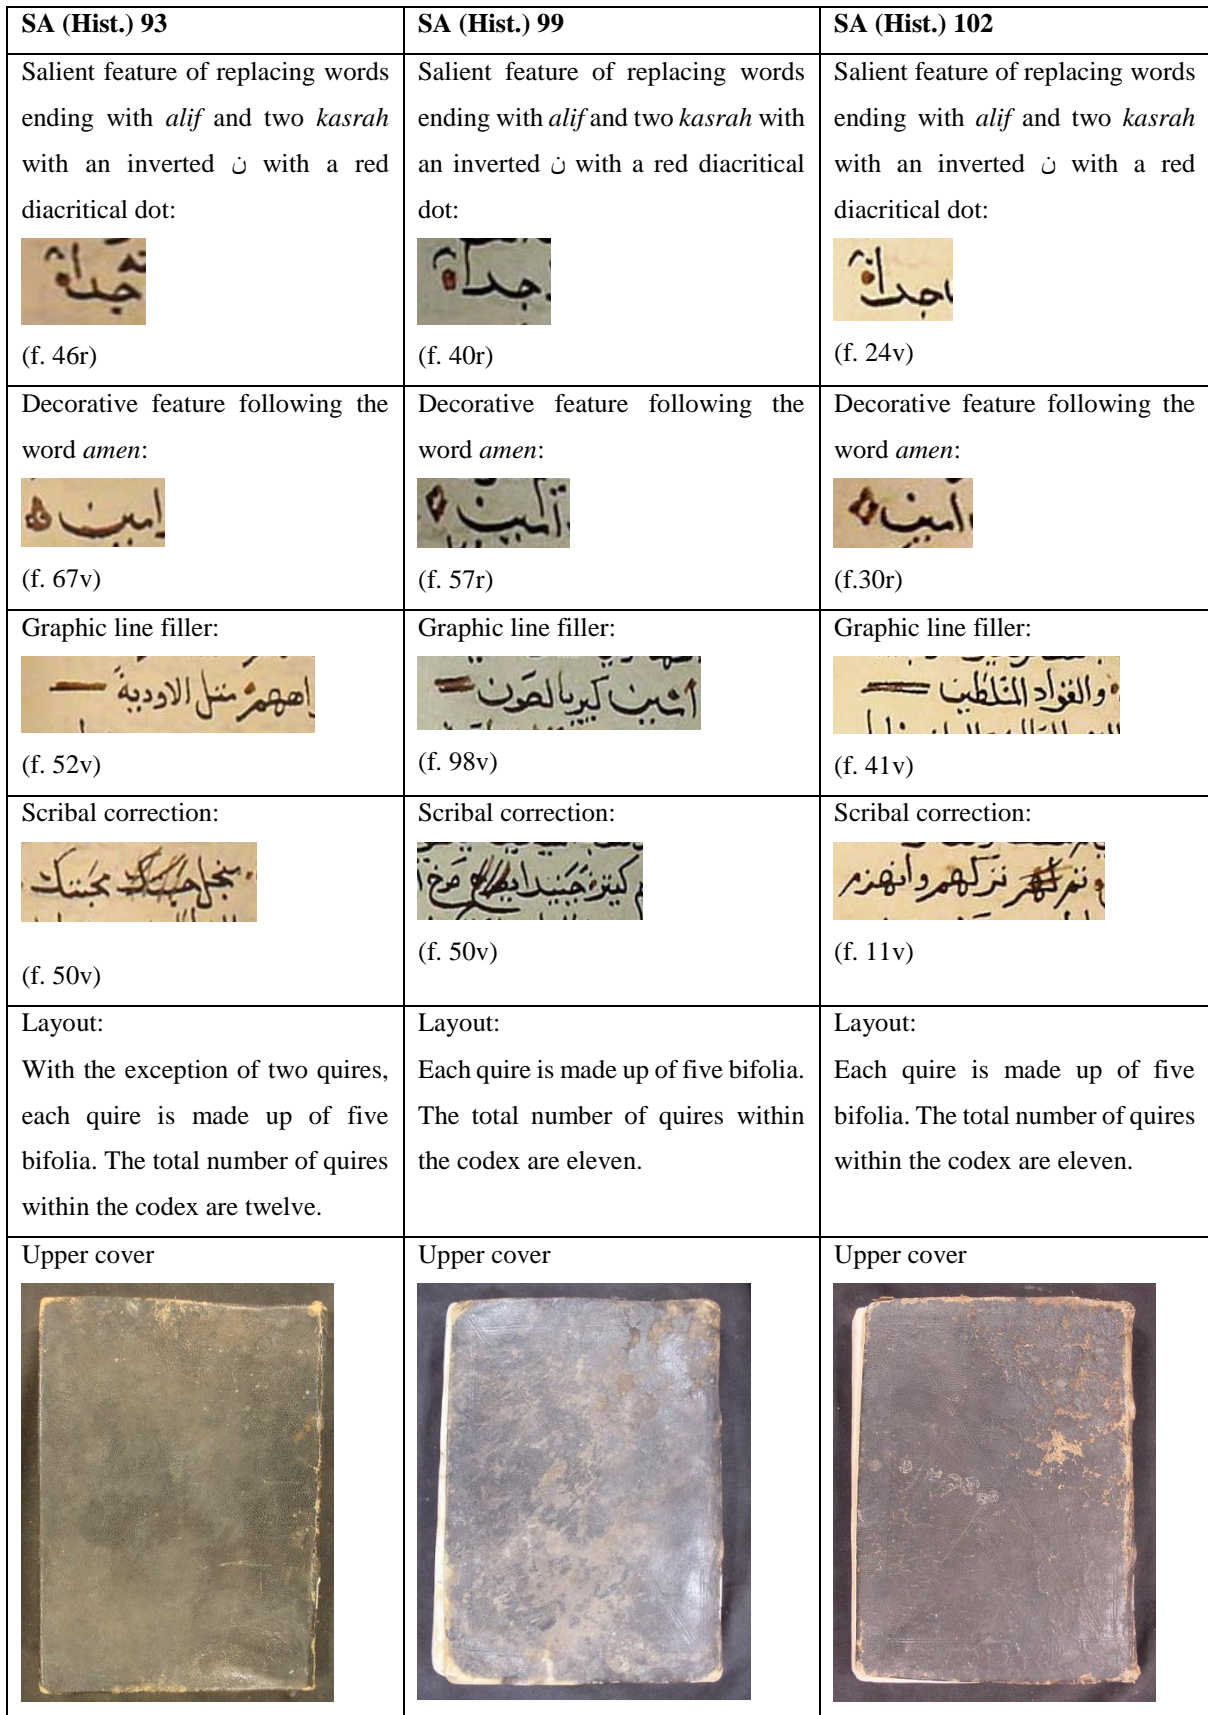 SA (Hist.) 93
SA (Hist.) 99
SA (Hist.) 102
Salient feature of replacing words
ending with alif and two kasrah
with an inverted ن with a red
diacritical dot:
جدا
(f. 46r)
Salient feature of replacing words
ending with alif and two kasrah with
an inverted ن with a red diacritical
dot:
جدا
(f. 40r)
Salient feature of replacing words
ending with alif and two kasrah
with an inverted ن with a red
diacritical dot:
جدا
(f. 24v)
Decorative feature following the
word amen:
امين
(f. 67v)
Decorative feature following the
word amen:
امين
(f. 57r)
Decorative feature following the
word amen:
امين
(f.30r)
Graphic line filler:
مثل الاودية
(f. 52v)
Graphic line filler:
(f. 98v)
Graphic line filler:
والفؤاد
(f. 41v)
Scribal correction:
(f. 50v)
Scribal correction:
(f. 50v)
Scribal correction:
(f. 11v)
Layout:
With the exception of two quires,
each quire is made up of five
bifolia. The total number of quires
within the codex are twelve.
Layout:
Each quire is made up of five bifolia.
The total number of quires within
the codex are eleven.
Layout:
Each quire is made up of five
bifolia. The total number of quires
within the codex are eleven.
Upper cover
Upper cover
Upper cover